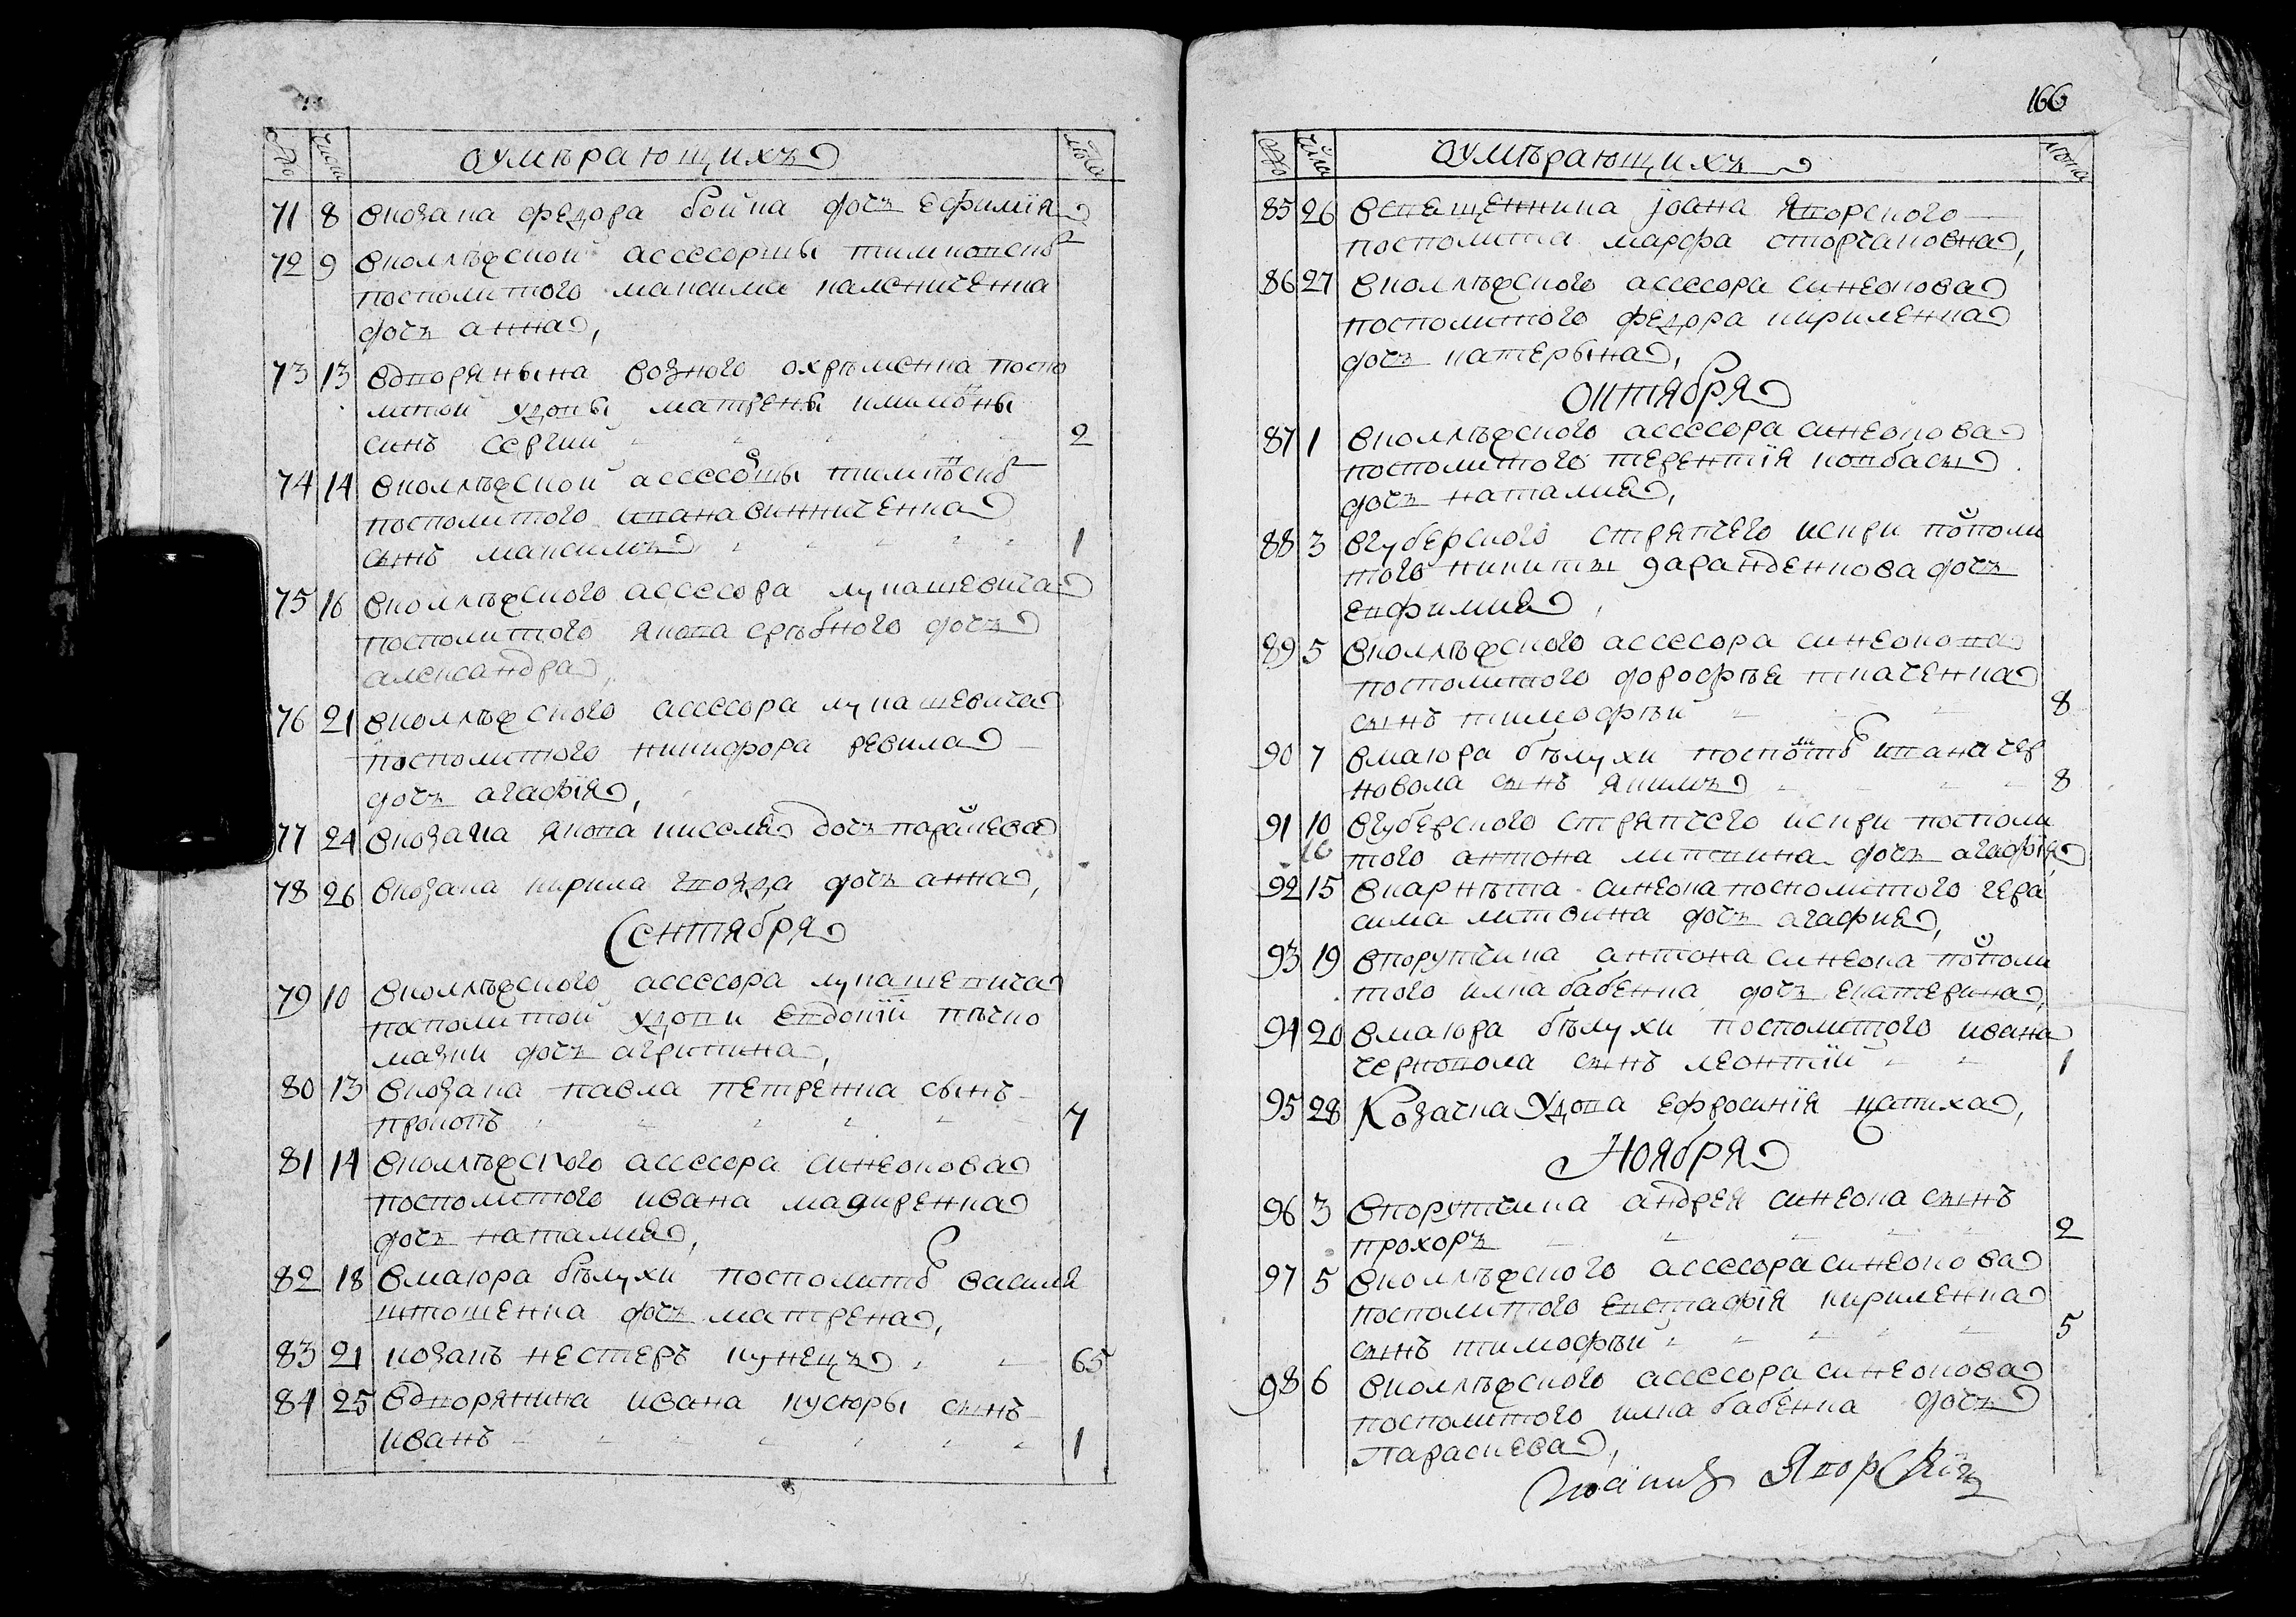 число оумѣрающихъ лѣта
71 8 вкозака федора бойка дочъ ефимїя
72 9 вколлѣжской асессоршы тимковско
посполитого максима калениченка
дочъ анна,
73 13 вдворянына возного охрѣменка поспо
литой удовы матрены климовны
синъ сергий 2
74 14 вколлѣжской асессоршы тимковско
посполитого ивана винниченка
сынъ максимъ 1
75 16 вколлѣжского асессора лукашевича
посполитого якова срѣбного дочъ
александра,
76 21 вколлѣжского асессора лукашевича
посполитого никифора ревила
дочъ агафїя,
77 24 вкозака якова киселя дочъ параскева
78 26 вкозака кирила гвозда дочъ анна,
Сентября
79 10 вколлѣжского асессора лукашевича
посполитой удови евдокїи пѣчко
мазки дочъ агрипина,
80 13 вкозака павла петренка сынъ
прокопъ 7
81 14 вколлѣжского асессора синеокова
посполитого ивана мадиренка
дочъ наталия,
82 18 вмаюра бѣлухи посполито василя
штошенка дочъ матрена,
83 21 козакъ нестеръ кунецъ 65
84 25 вдворянина ивана кусюры сынъ
иванъ 1
166
число оумѣрающихъ лѣта
85 26 всвещенника їоана яворского
посполита марфа сторчановна,
86 27 вколлѣжского асессора синеокова
посполитого федора кириленка
дочъ катерына,
октября
87 1 вколлѣжского асессора синеокова
посполитого терентїя ковбасы
дочъ наталия,
88 3 вгуберского стряпчего искри посполи
того никиты дочъ
евфимия,
89 5 вколлѣжского асессора синеокова
посполитого дорофѣя ткаченка
сынъ тимофѣй 8
90 7 вмаюра бѣлухи посполито ивана чер
новола сынъ якимъ 8
91 10 вгуберского стряпчего искри посполи
16 того антона литвина дочъ агафїя,
92 15 вкорнѣта синеока посполитого гера
сима литвина дочъ агафия,
93 19 впорутчика антона синеока посполи
того илка бабенка дочъ екатерина,
94 20 вмаюра бѣлухи посполитого ивана
черновола сынъ леонтий 1
95 28 Козачка удова ефросинїя цапиха,
Ноября
96 3 впорутчика андрея синеока сынъ
прохоръ 2
97 5 вколлѣжского асессора синеокова
посполитого евстафїя кириленка
сынъ тимофѣй 5
98 6 вколлѣжского асессора синеокова
посполитого илка бабенка дочъ
Параскева,
Иоаннъ Яворскїй